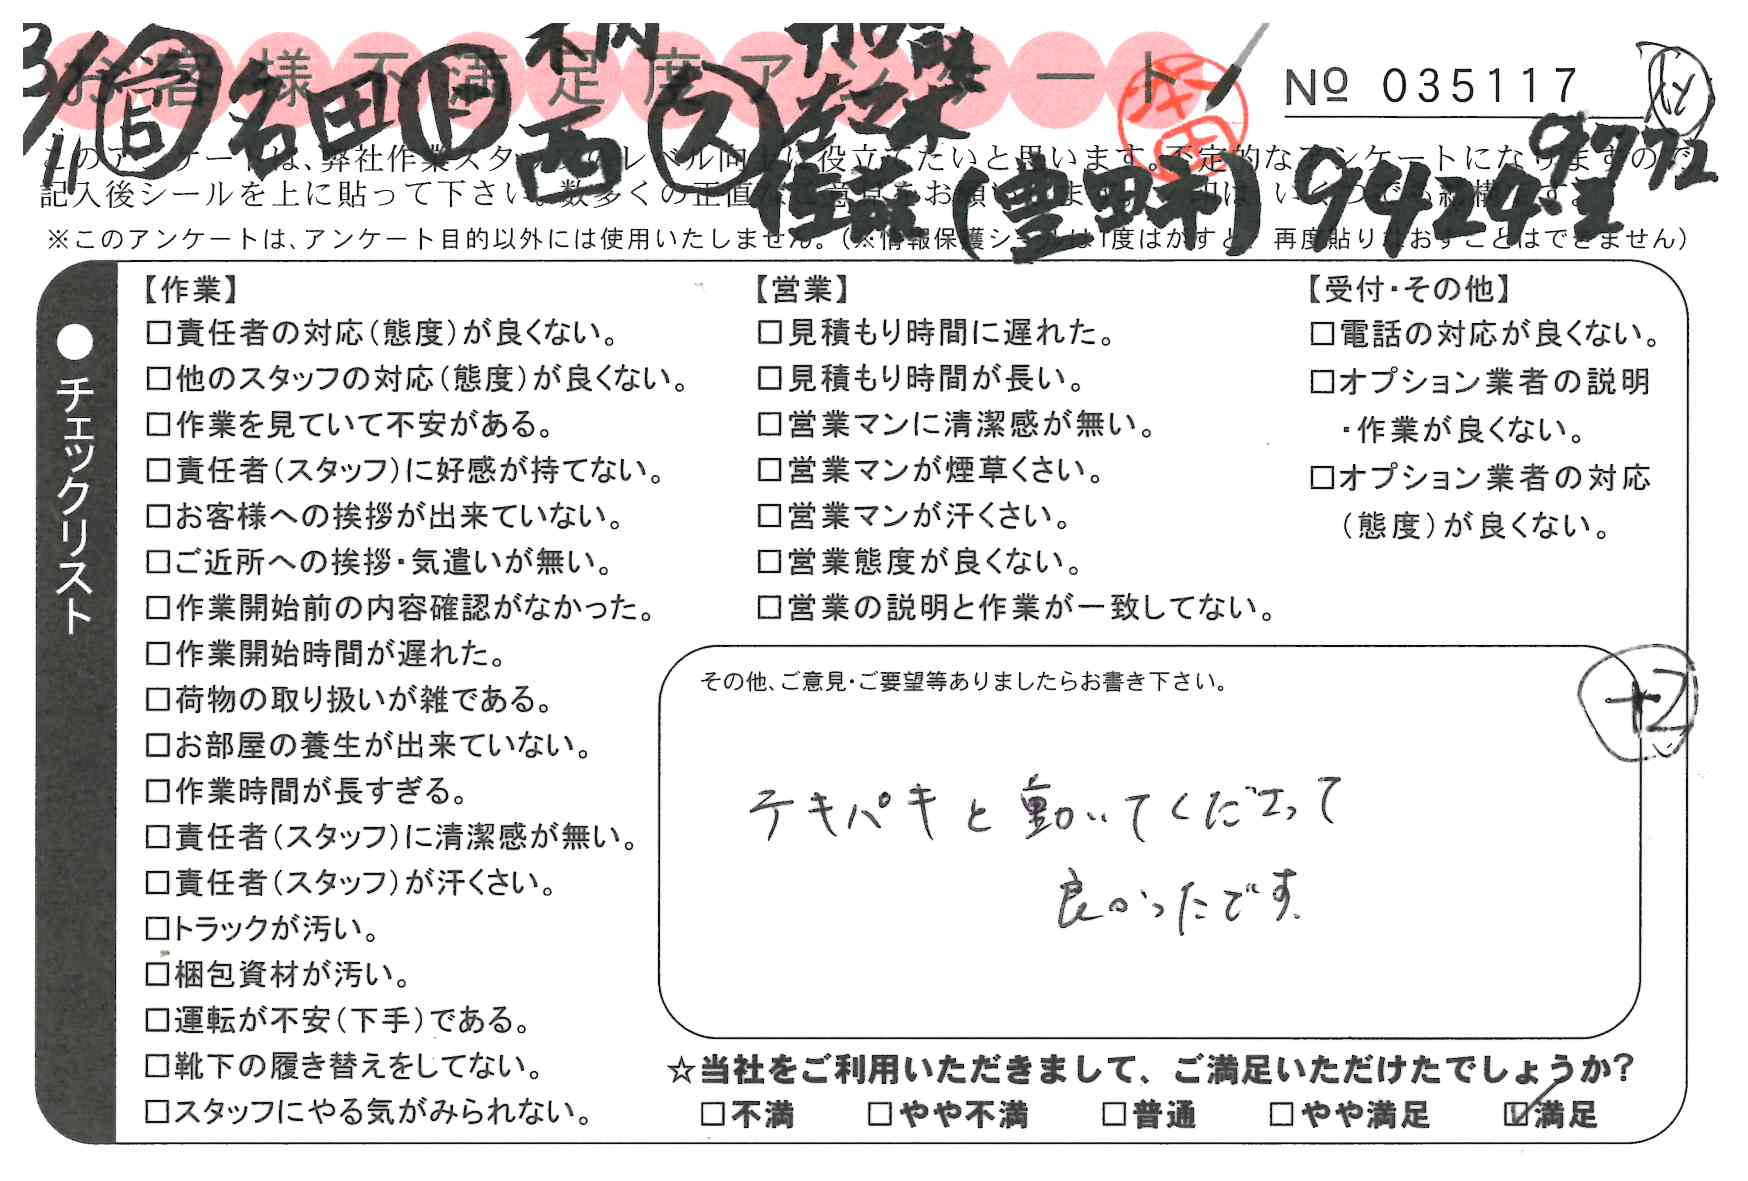 お客様不満足度アンケート
No 035117
9772
名田
西
佐藤(豊田東) 9424·I
※このアンケートは、アンケート目的以外には使用いたしません。
再度貼りなおすことはできません)
●チェックリスト
【作業】
□責任者の対応(態度)が良くない。
□他のスタッフの対応(態度)が良くない。
□作業を見ていて不安がある。
□責任者(スタッフ)に好感が持てない。
□お客様への挨拶が出来ていない。
□ご近所への挨拶・気遣いが無い。
□作業開始前の内容確認がなかった。
□作業開始時間が遅れた。
□荷物の取り扱いが雑である。
□お部屋の養生が出来ていない。
□作業時間が長すぎる。
□責任者(スタッフ)に清潔感が無い。
□責任者(スタッフ)が汗くさい。
□トラックが汚い。
□梱包資材が汚い。
□運転が不安(下手)である。
□靴下の履き替えをしてない。
□スタッフにやる気がみられない。
【営業】
□見積もり時間に遅れた。
□見積もり時間が長い。
□営業マンに清潔感が無い。
□営業マンが煙草くさい。
□営業マンが汗くさい。
□営業態度が良くない。
□営業の説明と作業が一致してない。
【受付・その他】
□電話の対応が良くない。
□オプション業者の説明
・作業が良くない。
□オプション業者の対応
(態度)が良くない。
その他、ご意見・ご要望等ありましたらお書き下さい。
+2
テキパキと動いてくださって
良かったです。
☆当社をご利用いただきまして、ご満足いただけたでしょうか?
□不満 □やや不満 □普通 □やや満足 ☑満足